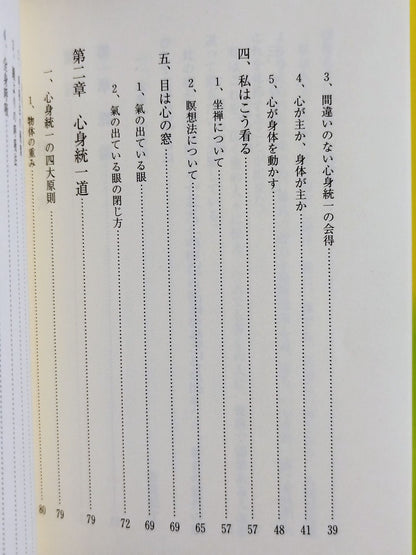 3、間違いのない心身統一の会得……39
4、心が主か、身体が主か……41
5、心が身体を動かす……48
四、私はこう看る……57
1、坐禅について……57
2、瞑想法について……65
五、目は心の窓……69
1、氣の出ている眼……69
2、氣の出ている眼の閉じ方……72
第二章　心身統一道……79
一、心身統一の四大原則……79
1、物体の重み……80